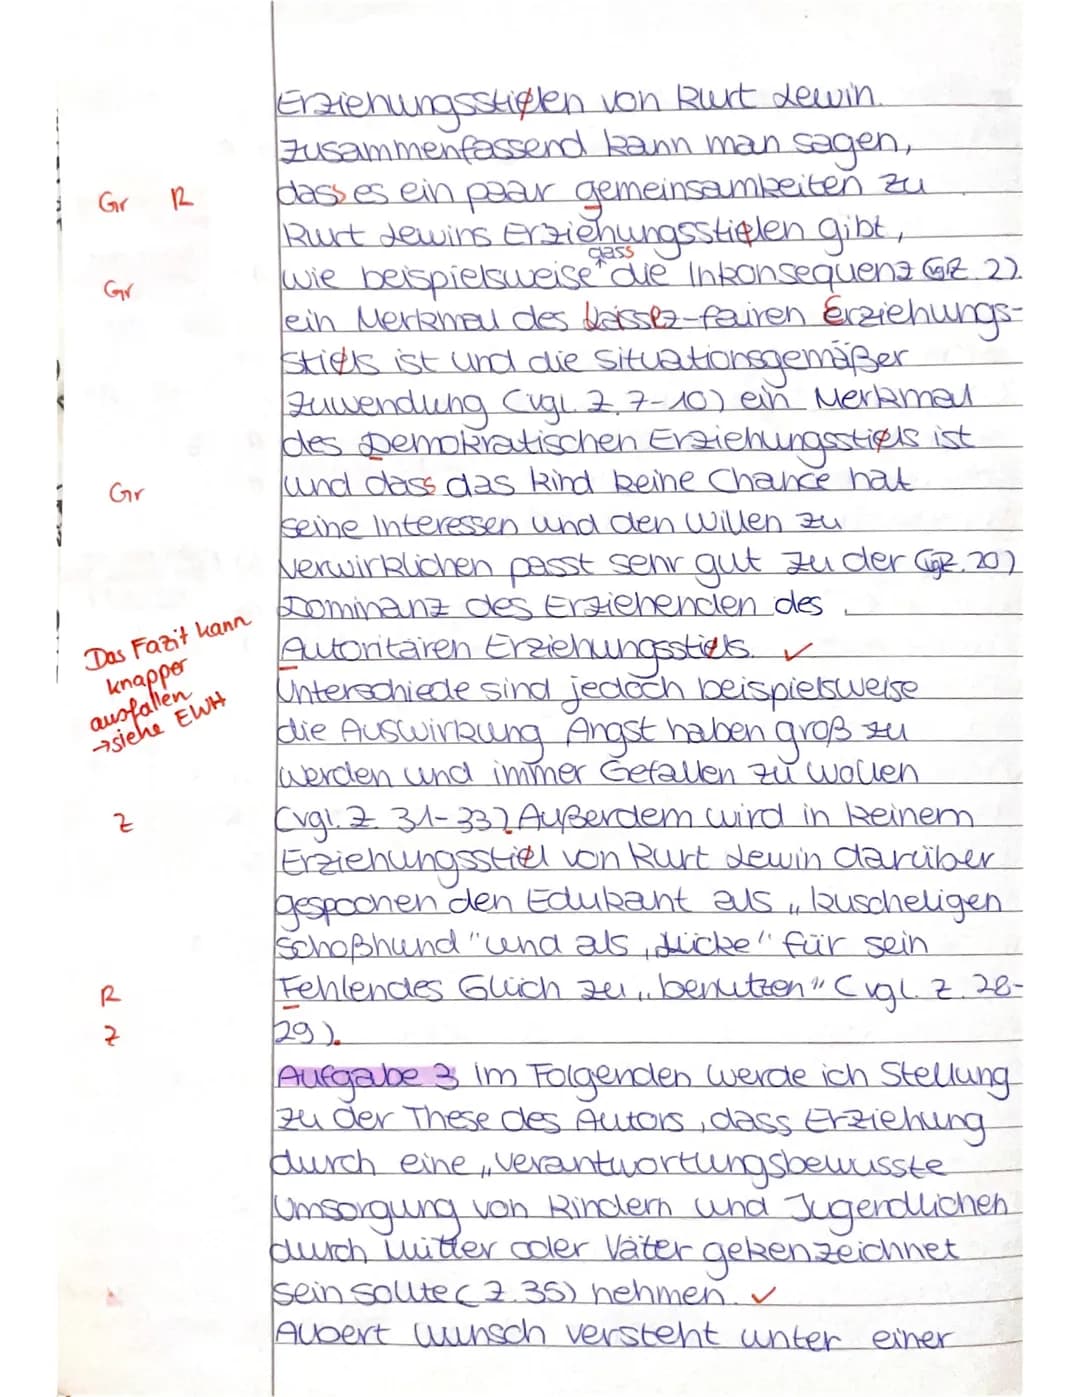 Erziehungsstielen von Kurt Lewin.
Zusammenfassend kann man sagen,
Gr R dass es ein paar gemeinsamkeiten zu
Kurt Lewins Erziehungsstielen gibt,
dass
Gr wie beispielsweise die Inkonsequenz (vgl. Z. 2)
ein Merkmal des Laissez-fairen Erziehungs-
stiels ist und die situationsgemäßer
Zuwendung (vgl. Z. 7-10) ein Merkmal
des Demokratischen Erziehungsstiels ist
Gr und dass das kind keine Chance hat
seine Interessen und den Willen zu
verwirklichen passt sehr gut zu der (vgl. Z. 20)
Dominanz des Erziehenden des
Autoritären Erziehungsstiels. ✓
Das Fazit kann
knapper
ausfallen
→siehe EWH
Unterschiede sind jedoch beispielsweise
die Auswirkung Angst haben groß zu
werden und immer Gefallen zu wollen
Z (vgl. Z. 31-33). Außerdem wird in keinem
Erziehungsstiel von Kurt Lewin darüber
gespochen den Edukant als „kuscheligen
Schoßhund" und als „Lücke" für sein
R Fehlendes Glück zu „benutzen" (vgl. Z. 28-
Z 29).
Aufgabe 3 im Folgenden werde ich Stellung
zu der These des Autors, dass Erziehung
durch eine „verantwortungsbewusste
Umsorgung von Kindern und Jugendlichen
durch Mütter oder Väter gekenzeichnet
sein sollte (Z. 35) nehmen. ✓
Albert Wunsch versteht unter einer